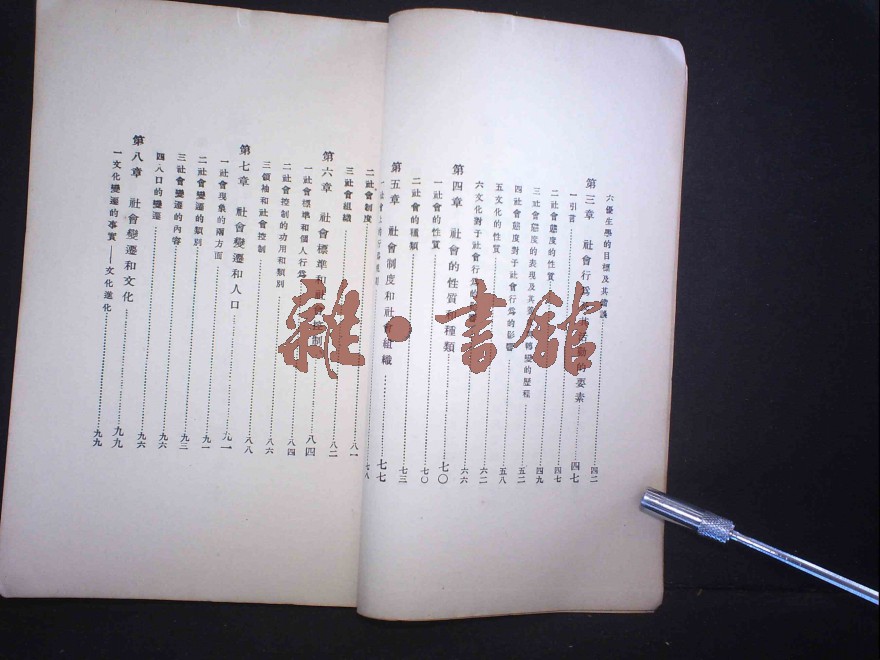 六優生學的目標及其
四二
第三章 社會行為
活動的要素
四七
一引言
四七
二社會態度的性質
四九
三社會態度的表現及其
轉變的歷程
五二
四社會態度對于社會行為的影響
五八
五文化的性質
六二
六文化對于社會行為
六六
第四章 社會的性質和種類
七〇
一社會的性質
七〇
二社會的種類
七三
第五章 社會制度和社會組織
七七
二社會制度
七八
三社會組織
八一
第六章 社會標準和社會控制
八二
一社會標準和個人行為
八四
二社會控制的功用和類別
八四
三領袖和社會控制
八六
第七章 社會變遷和人口
八八
一社會現象的兩方面
九一
二社會變遷的類別
九一
三社會變遷的內容
九三
四人口的變遷
九六
第八章 社會變遷和文化
九九
一文化變遷的事實——文化進化
九九
雜·書館